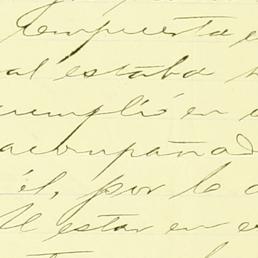 compuesta e
al estaba
cumplí en
acompañad
él, por lo
Al estar en e